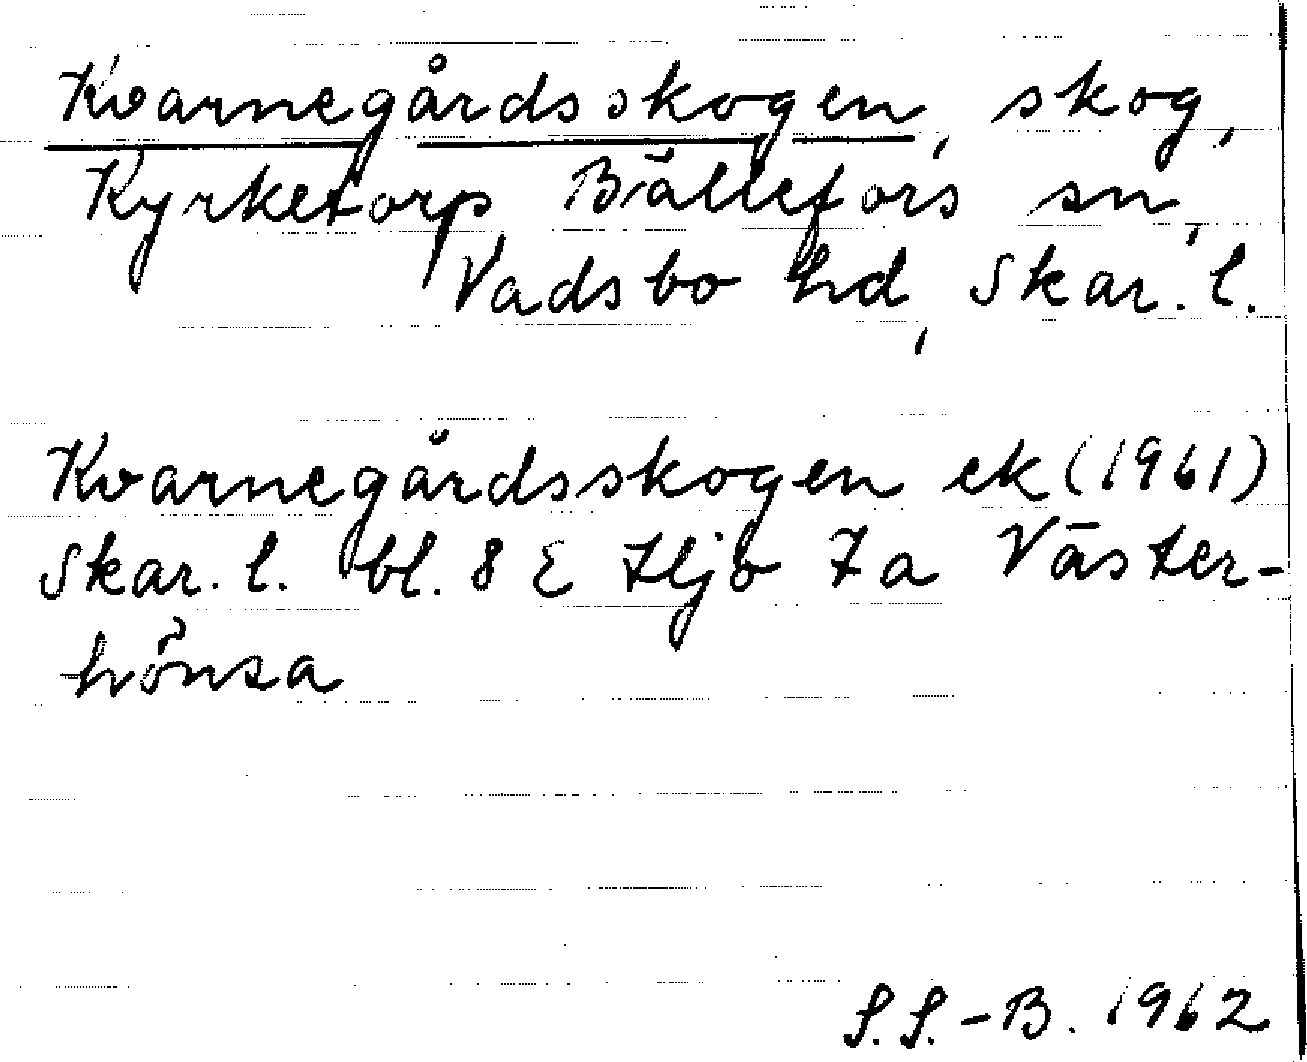 Kvarnegårdsskogen, skog,
Kyrketorp Bällefors sn,
Vadsbo hd, Skar. l.
Kvarnegårdsskogen ek (1961)
Skar. l. bl. 8 E Hjo 7a Väster-
hönsa
S.S.-B. 1962